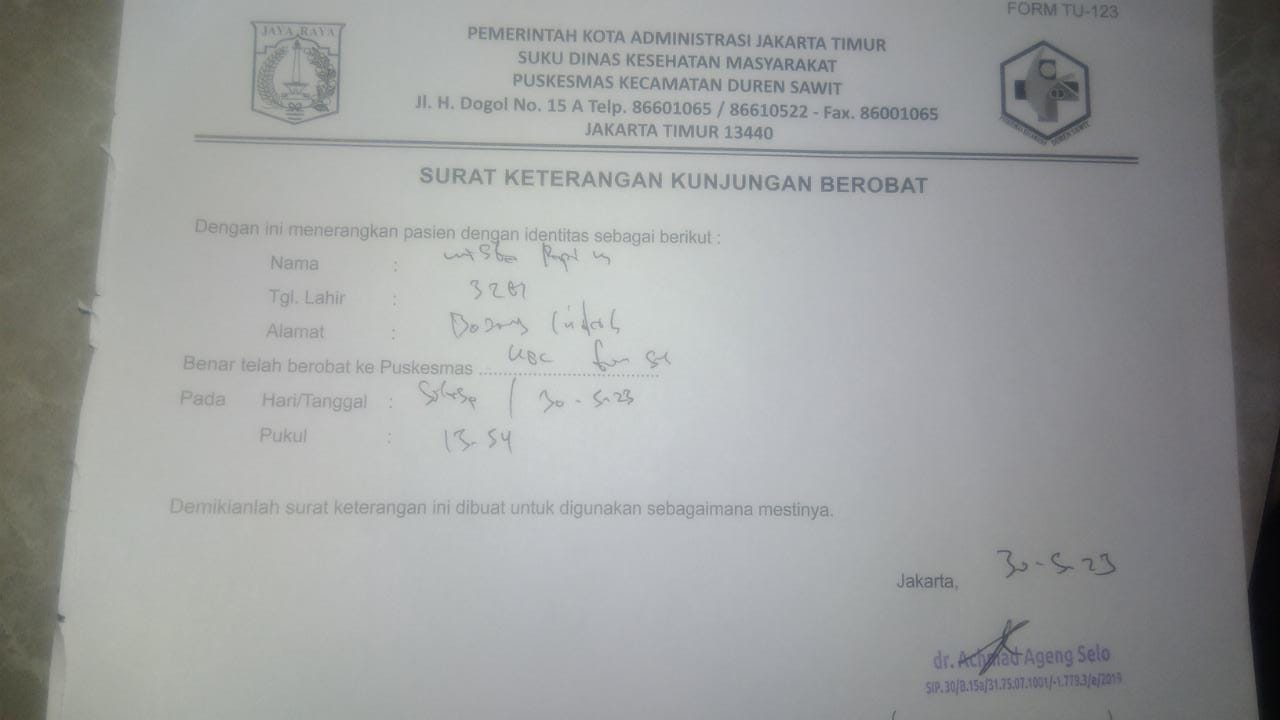 FORM TU-123
JAYA RAYA
PEMERINTAH KOTA ADMINISTRASI JAKARTA TIMUR
SUKU DINAS KESEHATAN MASYARAKAT
PUSKESMAS KECAMATAN DUREN SAWIT
Jl. H. Dogol No. 15 A Telp. 86601065 / 86610522 - Fax. 86001065
JAKARTA TIMUR 13440
SURAT KETERANGAN KUNJUNGAN BEROBAT
Dengan ini menerangkan pasien dengan identitas sebagai berikut :
Nama :
Tgl. Lahir :
Alamat :
Benar telah berobat ke Puskesmas
Pada Hari/Tanggal : Selasa / 30-5-23
Pukul : 13.54
Demikianlah surat keterangan ini dibuat untuk digunakan sebagaimana mestinya.
Jakarta, 30-5-23
dr. Achmad Ageng Selo
SIP.30/B.15a/31.75.07.1001/-1.779.3/e/2019